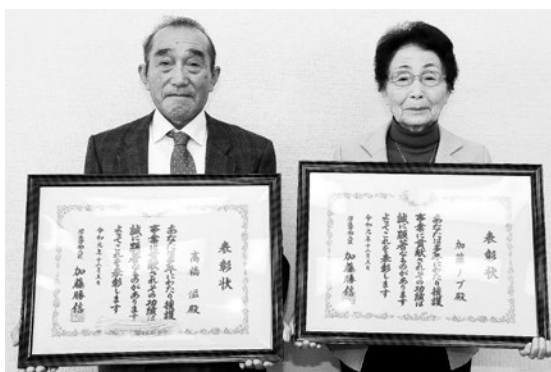 表彰状
高橋 殿
あなたは多年にわたり援護
事業に貢献されその功績は
誠に顕著なものがあります
よってこれを表彰します
令和元年十
厚生労働大臣 加藤勝信
表彰状
加 ノブ殿
あなたは多年にわたり援護
事業に貢献されその功績は
誠に顕著なものがあります
よってこれを表彰します
令和元年十
厚生労働大臣 加藤勝信